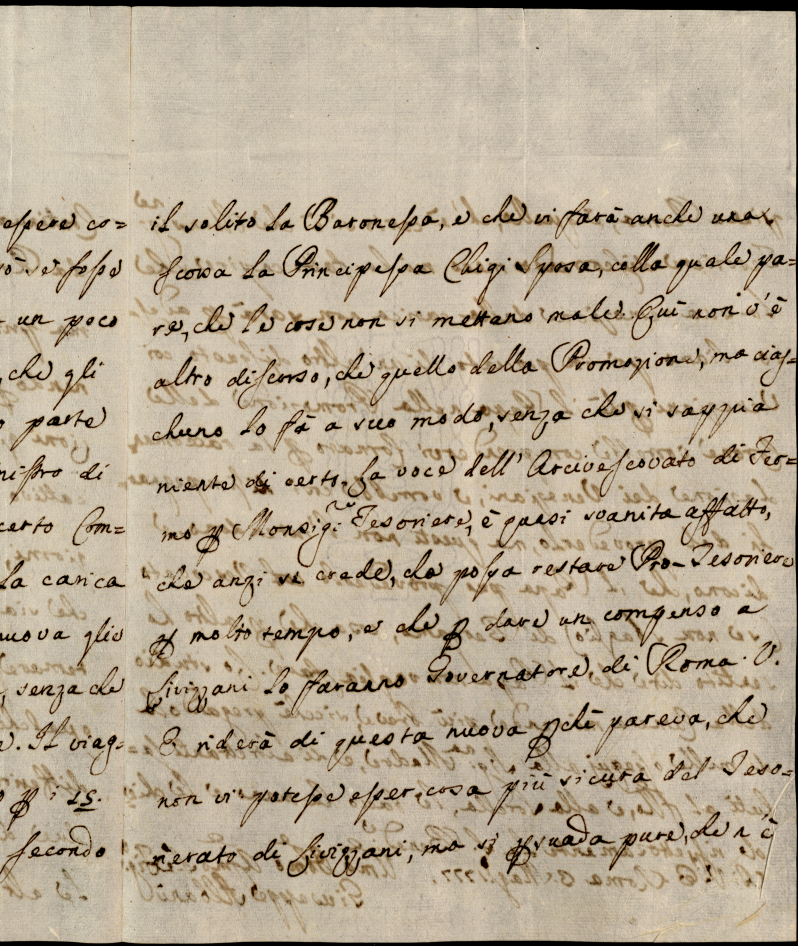 essere co=
rò se fosse
un poco
, che gli
parte
nistro di
certo Com=
la carica
nuova glie
, senza che
e. Il viag=
ꝑ i 15.
secondo
il solito la Baronessa, e che vi farà anche una
scorsa la Principessa Chigi Sposa, colla quale pa=
re, che le cose non si mettano male. Quì non v'è
altro discorso, che quello della Promozione, ma cias=
chuno lo fà a suo modo, senza che si sappia
niente di certo. La voce dell' Arcivescovato di Fer=
mo ꝑ Monsig.r Tesoriere, è quasi svanita affatto,
che anzi si crede, che possa restare Pro-Tesoriere
ꝑ molto tempo, e che ꝑ dare un compenso a
Livizzani lo faranno Governatore di Roma. V.
E riderà di questa nuova ꝑchè pareva, che
non vi potesse esser cosa più sicura del Teso=
rierato di Livizzani, ma si ꝑsuada pure, che n'è